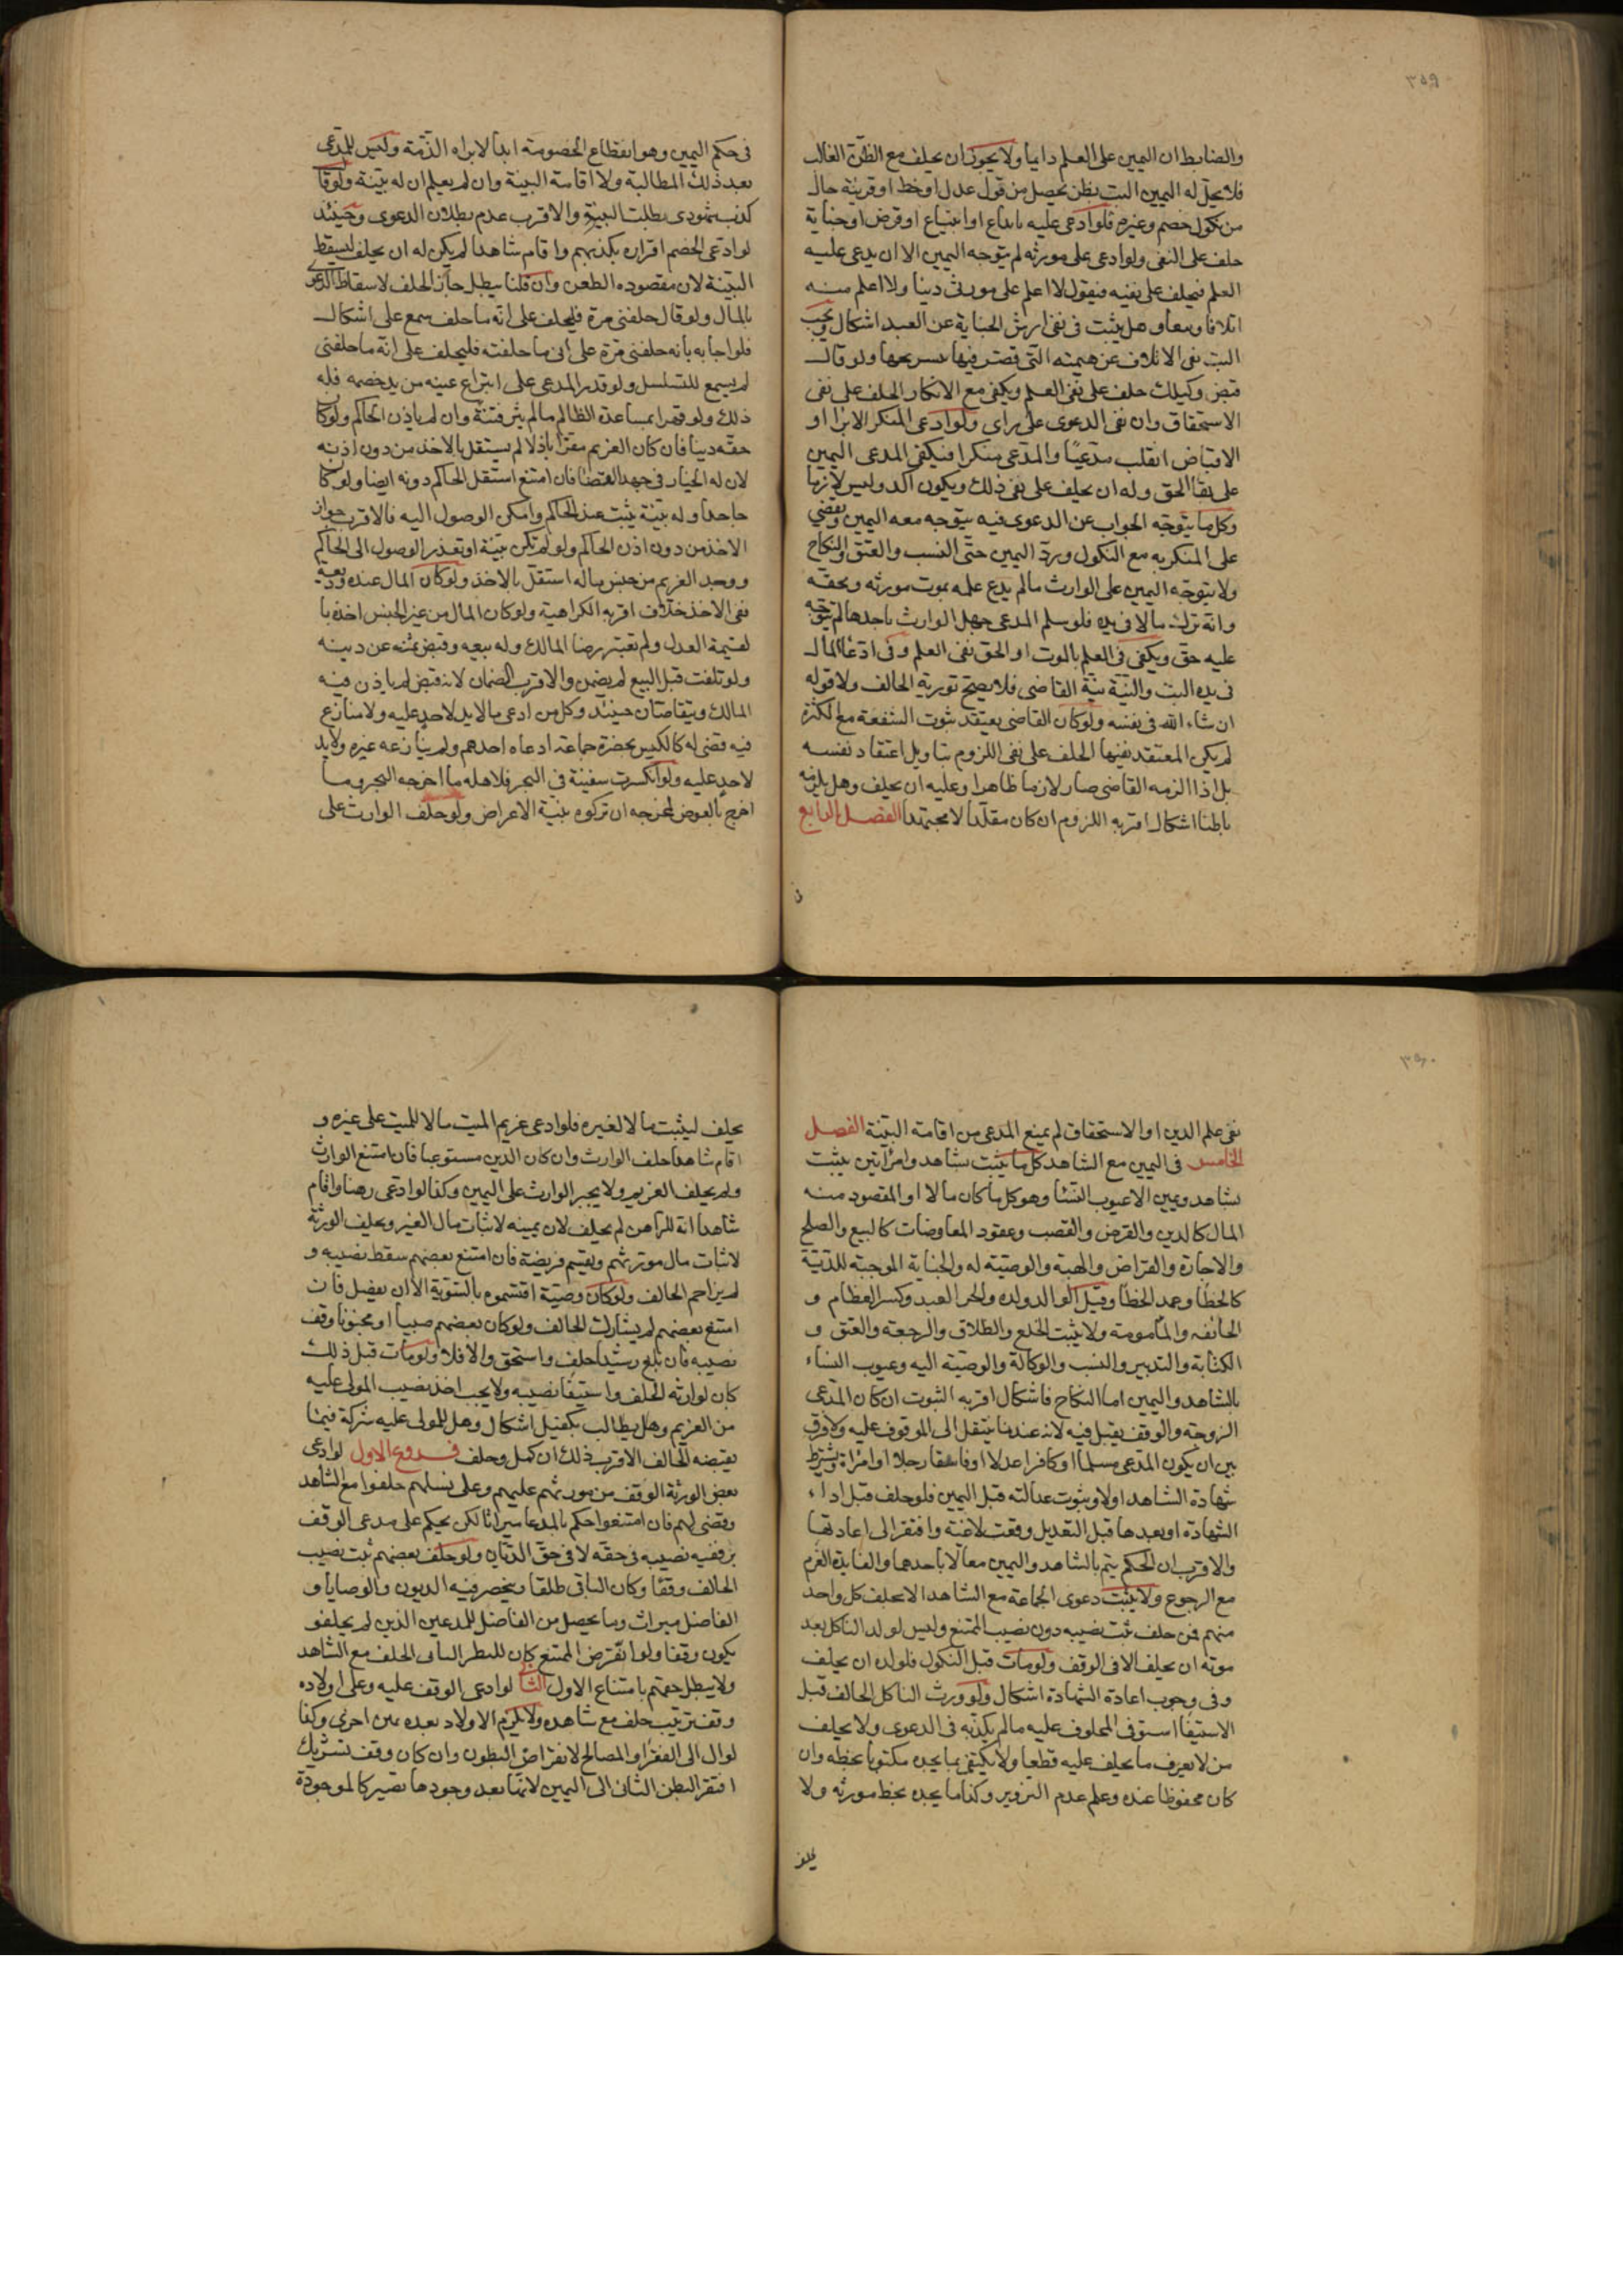 ٣٥٩
والضابط ان اليمين على العلم دايما ولا يجوز ان يحلف مع الظن الغالب
فلا يحل له اليمين البت بظن يحصل من قول عدل او خط او قرينة حال
من نكول خصم وغيره فلو ادعى عليه بابداع او ابتياع او قرض او جناية
حلف على النفى ولو ادعى على مورثه لم يتوجه اليمين الا ان يدعى عليه
العلم فيحلف على نفيه فيقول لا اعلم على مورثى دينا ولا اعلم منه
اتلافا وبيعا وهل يثبت فى نفى ارش الجناية عن العبد اشكال ويجب
البت نفى الاتلاف عن بهيمته التى قصر فيها بتسريحها ولو قال
قبض وكيلك حلف على نفى العلم ويكفى مع الانكار الحلف على نفى
الاستحقاق وان نفى الدعوى على راى ولو ادعى المنكر الابرا او
الاقباض انقلب مدعيًا والمدعى منكرا فيكفى المدعى اليمين
على بقا الحق وله ان يحلف على نفى ذلك ويكون آكد وليس لازما
وكل ما يتوجه الجواب عن الدعوى فيه يتوجه معه اليمين ويقضى
على المنكر به مع النكول ورد اليمين حتى النسب والعتق والنكاح
ولا يتوجه اليمين على الوارث ما لم يدع علمه بموت مورثه وبحقه
وانه ترك مالا فى يده فلو سلم المدعى جهل الوارث باحدها لم يتوجه
عليه حق ويكفى فى العلم بالموت او الحق نفى العلم وفى ادعا المال
فى يده البت والنية نية القاضى فلا يصح تورية الحالف ولا قوله
ان شاء الله فى نفسه ولو كان القاضى يعتقد ثبوت الشفعة مع الكثرة
لم يكن المعتقد نفيها الحلف على نفى اللزوم بتاويل اعتقاد نفسه
بل اذا الزمه القاضى صار لازما ظاهرا وعليه ان يحلف وهل يلزمه
باطنا اشكال اقربه اللزوم ان كان مقلدا لا مجتهدا الفصل الرابع
فى حكم اليمين وهو انقطاع الخصومة ابدا لا براه الذمة وليس للمدعى
بعد ذلك المطالبة ولا اقامة البينة وان لم يعلم ان له بينة ولو قا
كذب شهودى بطلت البينة والاقرب عدم بطلان الدعوى وحينئذ
لو ادعى الخصم اقراره بكذبهم واقام شاهدا لم يكن له ان يحلف ليسقط
البينة لان مقصوده الطعن وان قلنا يبطل جاز الحلف لاسقاط الدعوى
بالمال ولو قال حلفنى مرة فليحلف على انه ما حلف سمع على اشكال
فلو اجابه بانه حلفنى مرة على انى ما حلفته فليحلف على انه ما حلفنى
لم يسمع للتسلسل ولو قدر المدعى على انتزاع عينه من يد خصمه فله
ذلك ولو قهرا بمساعدة الظالم ما لم يثر فتنة وان لم ياذن الحاكم ولو كا
حقه دينا فان كان الغريم مقرا باذلا لم يستقل بالاخذ من دون اذنه
لان له الخيار فى جهة القضا فان امتنع استقل الحاكم دونه ايضا ولو كا
جاحدا وله بينة يثبت عند الحاكم وامكن الوصول اليه فالاقرب جواز
الاخذ من دون اذن الحاكم ولو لم تكن بينة او تعذر الوصول الى الحاكم
ووجد الغريم من جنس ماله استقل بالاخذ ولو كان المال عنده وديعة
ففى الاخذ خلاف اقربه الكراهية ولو كان المال من غير الجنس اخذه با
لقيمة العدل ولم تعتبر رضا المالك وله بيعه وقبض ثمنه عن دينه
ولو تلفت قبل البيع لم يضمن والاقرب الضمان لانه قبض لم ياذن فيه
المالك ويتقاصان حينئذ وكل من ادعى ما لا يد لاحد عليه ولا منازع
فيه قضى له كالكيس بحضرة جماعة ادعاه احدهم ولم ينازعه غيره ولا يد
لاحد عليه ولو انكسرت سفينة فى البحر فلاهله ما اخرجه البحر وما
اخرج بالغوص لمخرجه ان تركوه بنية الاعراض ولو حلف الوارث على
٣٦٠
نفى علم الدين او الاستحقاق لم يمنع المدعى من اقامة البينة الفصل
الخامس فى اليمين مع الشاهد كل ما يثبت بشاهد وامراتين يثبت
بشاهد ويمين الا عيوب النسا وهو كل ما كان مالا او المقصود منه
المال كالدين والقرض والغصب وعقود المعاوضات كالبيع والصلح
والاجارة والقراض والهبة والوصية له والجناية الموجبة للدية
كالخطا وعمد الخطا وقتل الوالد ولده والحر العبد وكسر العظام و
الجائفه والمامومة ولا يثبت الخلع والطلاق والرجعة والعتق و
الكتابة والتدبير والنسب والوكالة والوصية اليه وعيوب النساء
بالشاهد واليمين اما النكاح فاشكال اقربه الثبوت ان كان المدعى
الزوجة والوقف يقبل فيه لانه عندنا ينتقل الى الموقوف عليه ولا فرق
بين ان يكون المدعى مسلما او كافرا عدلا او فاسقا رجلا او امراة ويشترط
شهادة الشاهد اولا وثبوت عدالته قبل اليمين فلو حلف قبل اداء
الشهادة او بعدها قبل التعديل وقعت لاغية وافتقر الى اعادتها
والاقرب ان الحكم يتم بالشاهد واليمين معا لا باحدهما والفايدة الغرم
مع الرجوع ولا يثبت دعوى الجماعة مع الشاهد الا بحلف كل واحد
منهم فمن حلف ثبت نصيبه دون نصيب الممتنع وليس لولد الناكل بعد
موته ان يحلف الا فى الوقف ولو مات قبل النكول فلولده ان يحلف
وفى وجوب اعادة الشهادة اشكال ولو ورث الناكل الحالف قبل
الاستيفا استوفى المحلوف عليه ما لم يكذبه فى الدعوى ولا يحلف
من لا يعرف ما يحلف عليه قطعا ولا يكتفى بما يجده مكتوبا بخطه وان
كان محفوظا عنده وعلم عدم التزوير وكذا ما يجده بخط مورثه ولا
يحلف
يحلف ليثبت مالا لغيره فلو ادعى غريم الميت مالا للميت على غيره و
اقام شاهدا حلف الوارث وان كان الدين مستوعبا فان امتنع الوارث
ولم يحلف الغريم ولا يجبر الوارث على اليمين وكذا لو ادعى رهنا واقام
شاهدا انه للراهن لم يحلف لان يمينه لاثبات مال الغير ويحلف الورثة
لاثبات مال مورثهم ويقسم فريضة فان امتنع بعضهم سقط نصيبه و
لم يزاحم الحالف ولو كان وصية اقتسموه بالتسوية الا ان يفضل فان
امتنع بعضهم لم يشارك الحالف ولو كان بعضهم صبيا او مجنونا وقف
نصيبه فان بلغ رشيدا حلف واستحق والا فلا ولو مات قبل ذلك
كان لوارثه الحلف واستيفا نصيبه ولا يجب اخذ نصيب المولى عليه
من الغريم وهل يطالب بكفيل اشكال وهل للمولى عليه شركة فيما
يقبضه الحالف الاقرب ذلك ان كمل وحلف فروع الاول لو ادعى
بعض الورثة الوقف من مورثهم عليهم وعلى نسلهم حلفوا مع الشاهد
وقضى لهم فان امتنعوا حكم بالمدعا ميراثا لكن يحكم على مدعى الوقف
بوقفية نصيبه فى حقه لا فى حق الديان ولو حلف بعضهم ثبت نصيب
الحالف وقفا وكان الباقى طلقا ينحصر فيه الديون والوصايا و
الفاضل ميراث وما يحصل من الفاضل للمدعين الذين لم يحلفو
يكون وقفا ولو انقرض الممتنع كان للبطن الثانى الحلف مع الشاهد
ولا يبطل حقهم بامتناع الاول الثا لو ادعى الوقف عليه وعلى اولاده
وقف ترتيب حلف مع شاهده ولا يلزم الاولاد بعده يمين اخرى وكذا
لو ال الى الفقرا والمصالح لانقراض البطون وان كان وقف تشريك
افتقر البطن الثانى الى اليمين لانها بعد وجودها تصير كالموجودة